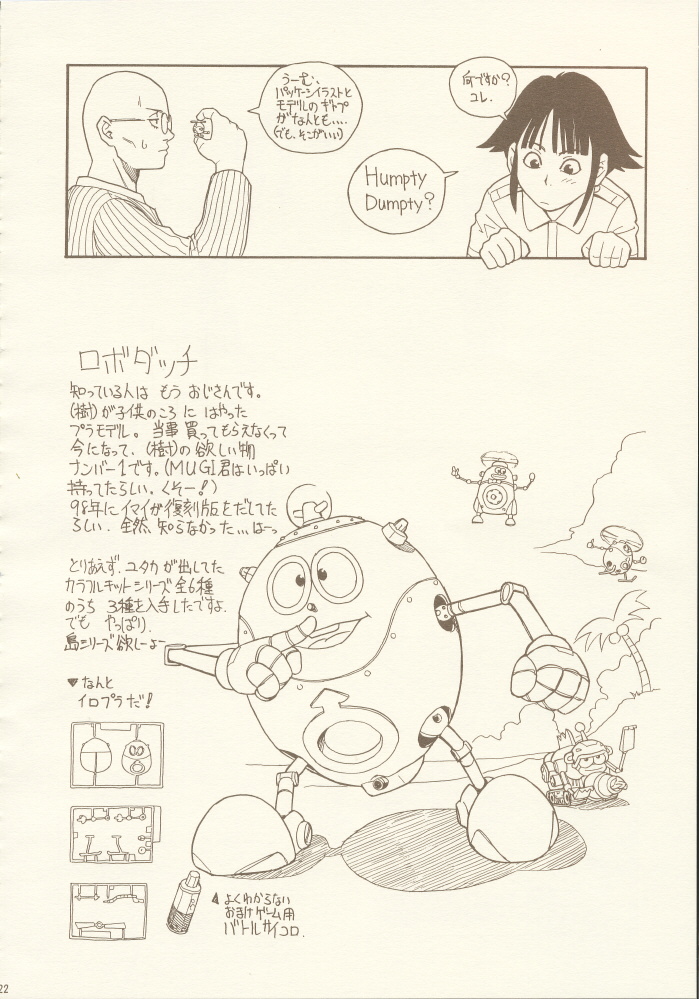 うーむ、
パッケージイラストと
モデルのギャプ
がなんとも....
(でも、そこがいい)
何ですか?
コレ.
Humpty
Dumpty?
ロボダッチ
知っている人は もう おじさんです。
(樹)が子供のころ に はやった
プラモデル。当事 買ってもらえなくって
今になって、(樹)の欲しい物
ナンバー1です。(MUGI君はいっぱい
持ってたらしい。くそー!)
98年にイマイが復刻版をだしてた
らしい. 全然、知らなかった...はーっ
とりあえず. ユタカが出してた
カラフルキットシリーズ 全6種
のうち 3種を入手したですよ.
でも やっぱり.
島シリーズ欲しーよー
▼なんと
イロプラだ!
◀よくわからない
おまけゲーム用
バトルサイコロ.
22